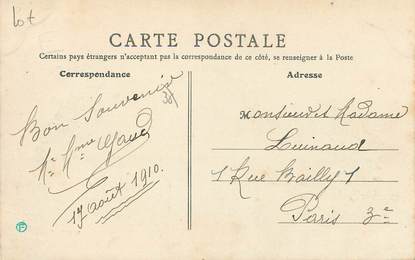 Lot
CARTE POSTALE
Certains pays étrangers n'acceptent pas la correspondance de ce côté, se renseigner à la Poste
Correspondance
Adresse
Bon Souvenir
Mr Mme
17 août 1910.
Monsieur et Madame
Luinaud
1 Rue Bailly 1
Paris 3e